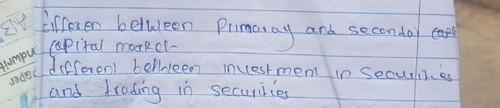 differen between Primaray and secondat
capital market-
different between investment in securities
and trading in securities